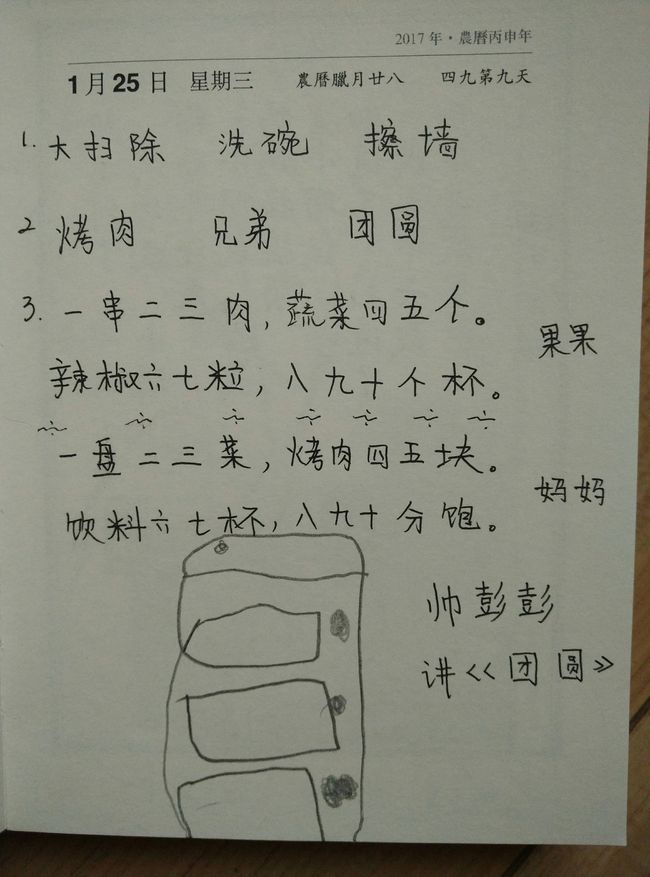 2017年·農曆丙申年
1月25日 星期三 農曆臘月廿八 四九第九天
1. 大扫除 洗碗 擦墙
2 烤肉 兄弟 团圆
3. 一串二三肉，蔬菜四五个。
果果
辣椒六七粒，八九十个杯。
一盘二三菜，烤肉四五块。
妈妈
饮料六七杯，八九十分饱。
帅彭彭
讲《团圆》